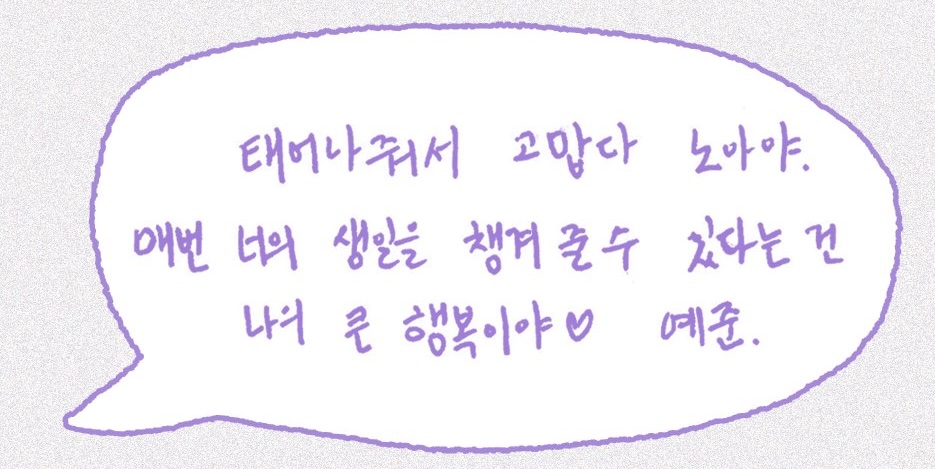 태어나줘서 고맙다 노아야.
매번 너의 생일을 챙겨 줄 수 있다는 건
나의 큰 행복이야♡ 예준.